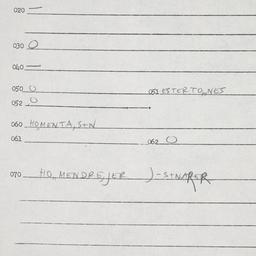 020 —
030 O
040 —
050 O 051 ESTERTO,,NES
052 O
060 HO,MENTA,S+N
061 062 O
070 HO,,MENDRE,JER )-S+NARER